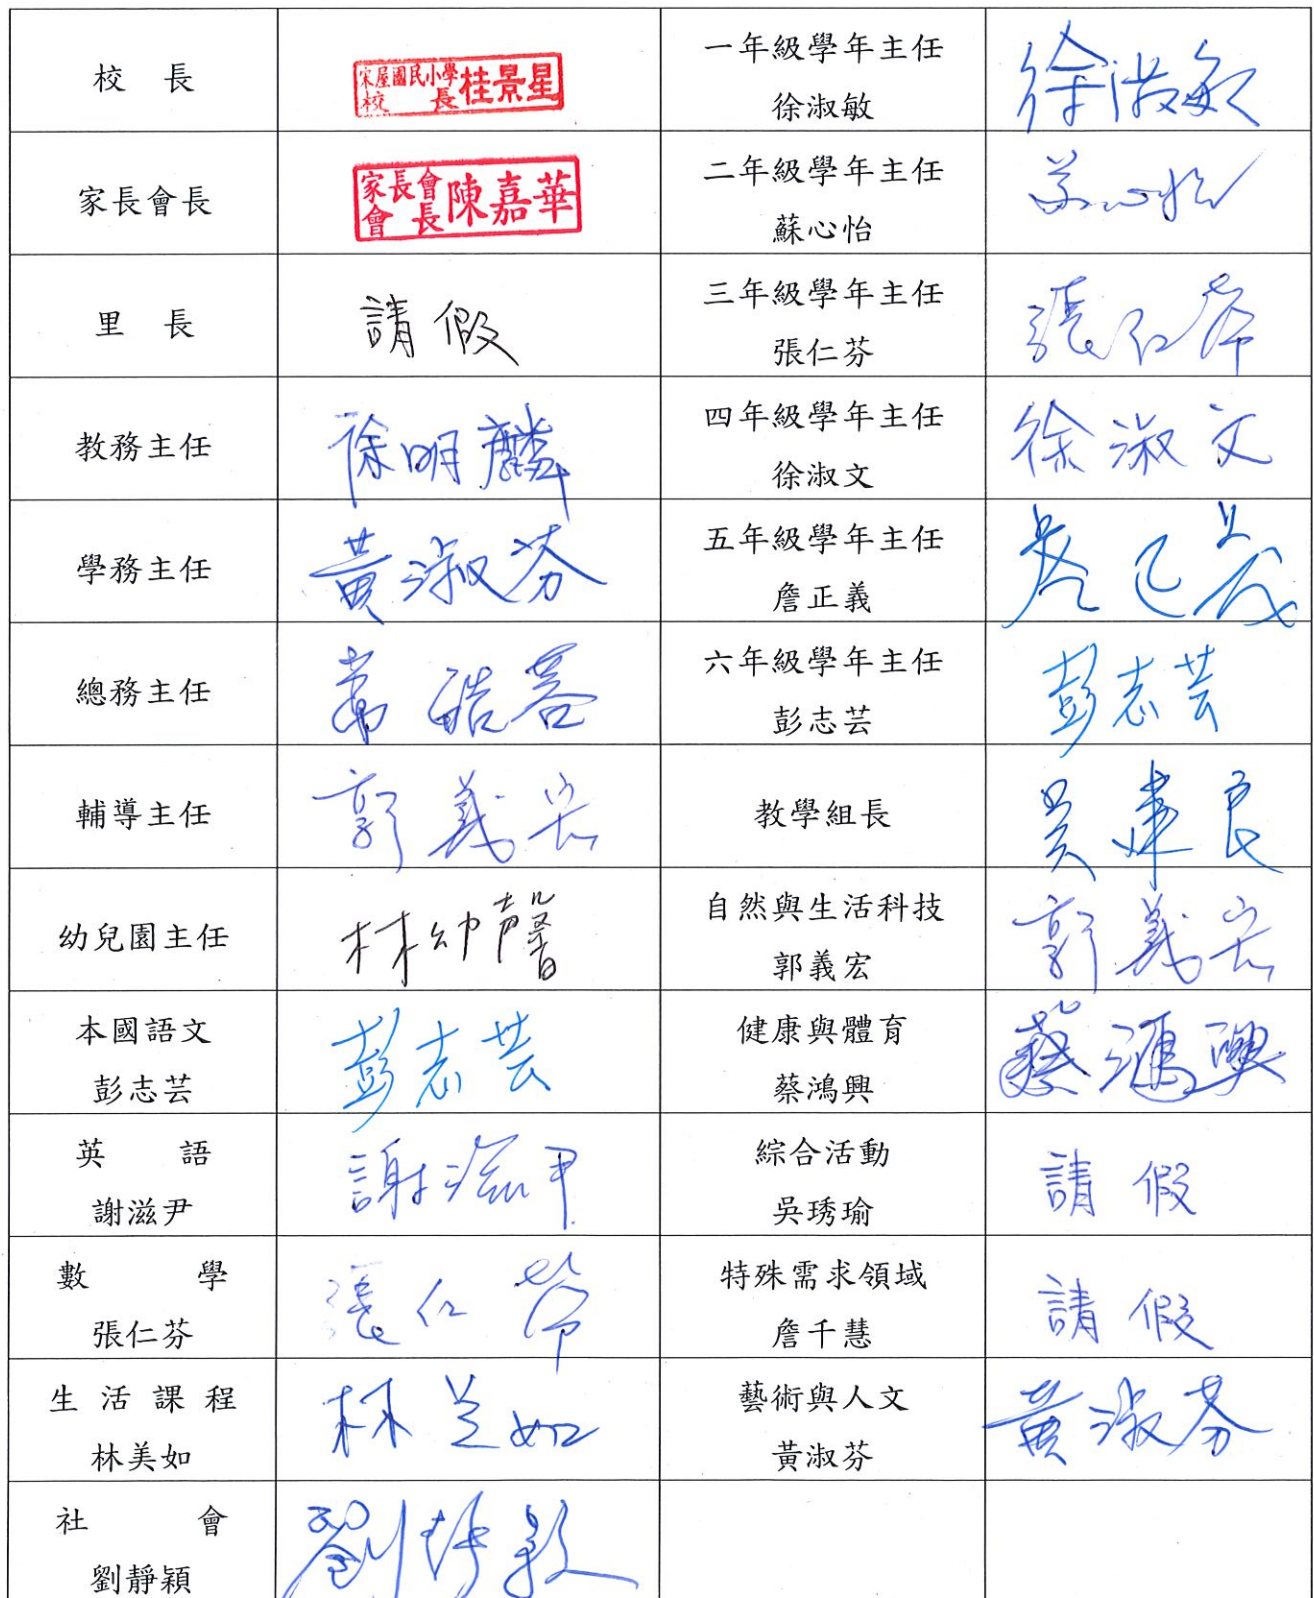 校長
宋屋國民小學校長桂景星
一年級學年主任
徐淑敏
徐淑敏
家長會長
家長會會長陳嘉華
二年級學年主任
蘇心怡
蘇心怡
里長
請假
三年級學年主任
張仁芬
張仁芬
教務主任
徐明麟
四年級學年主任
徐淑文
徐淑文
學務主任
黃淑芬
五年級學年主任
詹正義
詹正義
總務主任
六年級學年主任
彭志芸
彭志芸
輔導主任
郭義宏
教學組長
幼兒園主任
林幼馨
自然與生活科技
郭義宏
郭義宏
本國語文
彭志芸
彭志芸
健康與體育
蔡鴻興
蔡鴻興
英語
謝滋尹
謝滋尹
綜合活動
吳琇瑜
請假
數學
張仁芬
張仁芬
特殊需求領域
詹千慧
請假
生活課程
林美如
林美如
藝術與人文
黃淑芬
黃淑芬
社會
劉靜穎
劉靜穎